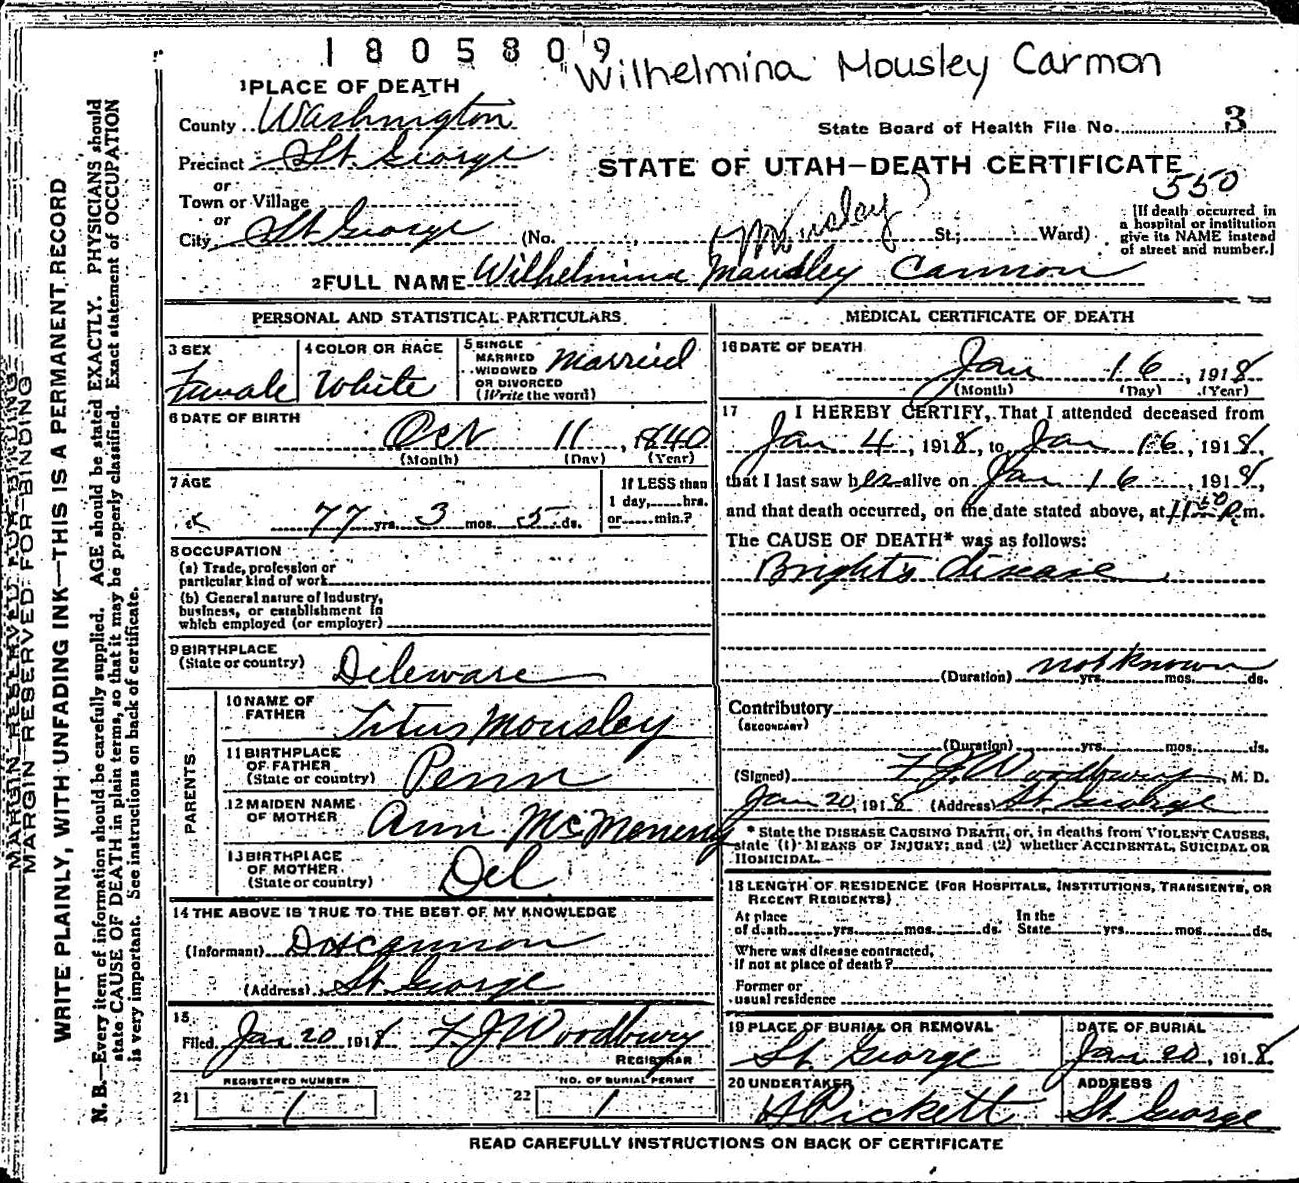 1805809
Wilhelmina Mousley Carmon
1 PLACE OF DEATH
County Washington
State Board of Health File No. 3
Precinct St. George
STATE OF UTAH—DEATH CERTIFICATE
550
or
Town or Village
or
City St George (No. , St; Ward)
Mousley
[If death occurred in
a hospital or institution
give its NAME instead
of street and number.]
2 FULL NAME Wilhelmina Mausley Carmon
PERSONAL AND STATISTICAL PARTICULARS
3 SEX
Female
4 COLOR OR RACE
White
5 SINGLE
MARRIED
WIDOWED
OR DIVORCED
(Write the word)
Married
6 DATE OF BIRTH
Oct 11, 1840
(Month) (Day) (Year)
7 AGE
77 yrs. 3 mos. 5 ds.
If LESS than
1 day, hrs.
or min.?
8 OCCUPATION
(a) Trade, profession or
particular kind of work
(b) General nature of Industry,
business, or establishment in
which employed (or employer)
9 BIRTHPLACE
(State or country) Dileware
PARENTS
10 NAME OF
FATHER Titus Mousley
11 BIRTHPLACE
OF FATHER
(State or country) Penn
12 MAIDEN NAME
OF MOTHER Ann McMenemy
13 BIRTHPLACE
OF MOTHER
(State or country) Del
14 THE ABOVE IS TRUE TO THE BEST OF MY KNOWLEDGE
(Informant)
(Address) St. George
15
Filed Jan 20 1918 F J Woodbury
REGISTRAR
REGISTERED NUMBER
21 1
NO. OF BURIAL PERMIT
22 1
MEDICAL CERTIFICATE OF DEATH
16 DATE OF DEATH
Jan 16, 1918
(Month) (Day) (Year)
17 I HEREBY CERTIFY, That I attended deceased from
Jan 4, 1918, to Jan 16, 1918,
that I last saw her alive on Jan 16, 1918,
and that death occurred, on the date stated above, at 11 P.m.
The CAUSE OF DEATH* was as follows:
Bright's disease
(Duration) not known yrs. mos. ds.
Contributory
(SECONDARY)
(Duration) yrs. mos. ds.
(Signed) F J Woodbury, M. D.
Jan 20 1918 (Address) St. George
* State the DISEASE CAUSING DEATH, or, in deaths from VIOLENT CAUSES,
state (1) MEANS OF INJURY; and (2) whether ACCIDENTAL, SUICIDAL OR
HOMICIDAL.
18 LENGTH OF RESIDENCE (FOR HOSPITALS, INSTITUTIONS, TRANSIENTS, OR
RECENT RESIDENTS)
At place
of death yrs. mos. ds.
In the
State yrs. mos. ds.
Where was disease contracted,
if not at place of death?
Former or
usual residence
19 PLACE OF BURIAL OR REMOVAL
St. George
DATE OF BURIAL
Jan 20, 1918
20 UNDERTAKER
Pickett
ADDRESS
St. George
READ CAREFULLY INSTRUCTIONS ON BACK OF CERTIFICATE
MARGIN RESERVED FOR BINDING
MARGIN RESERVED FOR BINDING
WRITE PLAINLY, WITH UNFADING INK—THIS IS A PERMANENT RECORD
N. B.—Every item of information should be carefully supplied. AGE should be stated EXACTLY. PHYSICIANS should
state CAUSE OF DEATH in plain terms, so that it may be properly classified. Exact statement of OCCUPATION
is very important. See instructions on back of certificate.